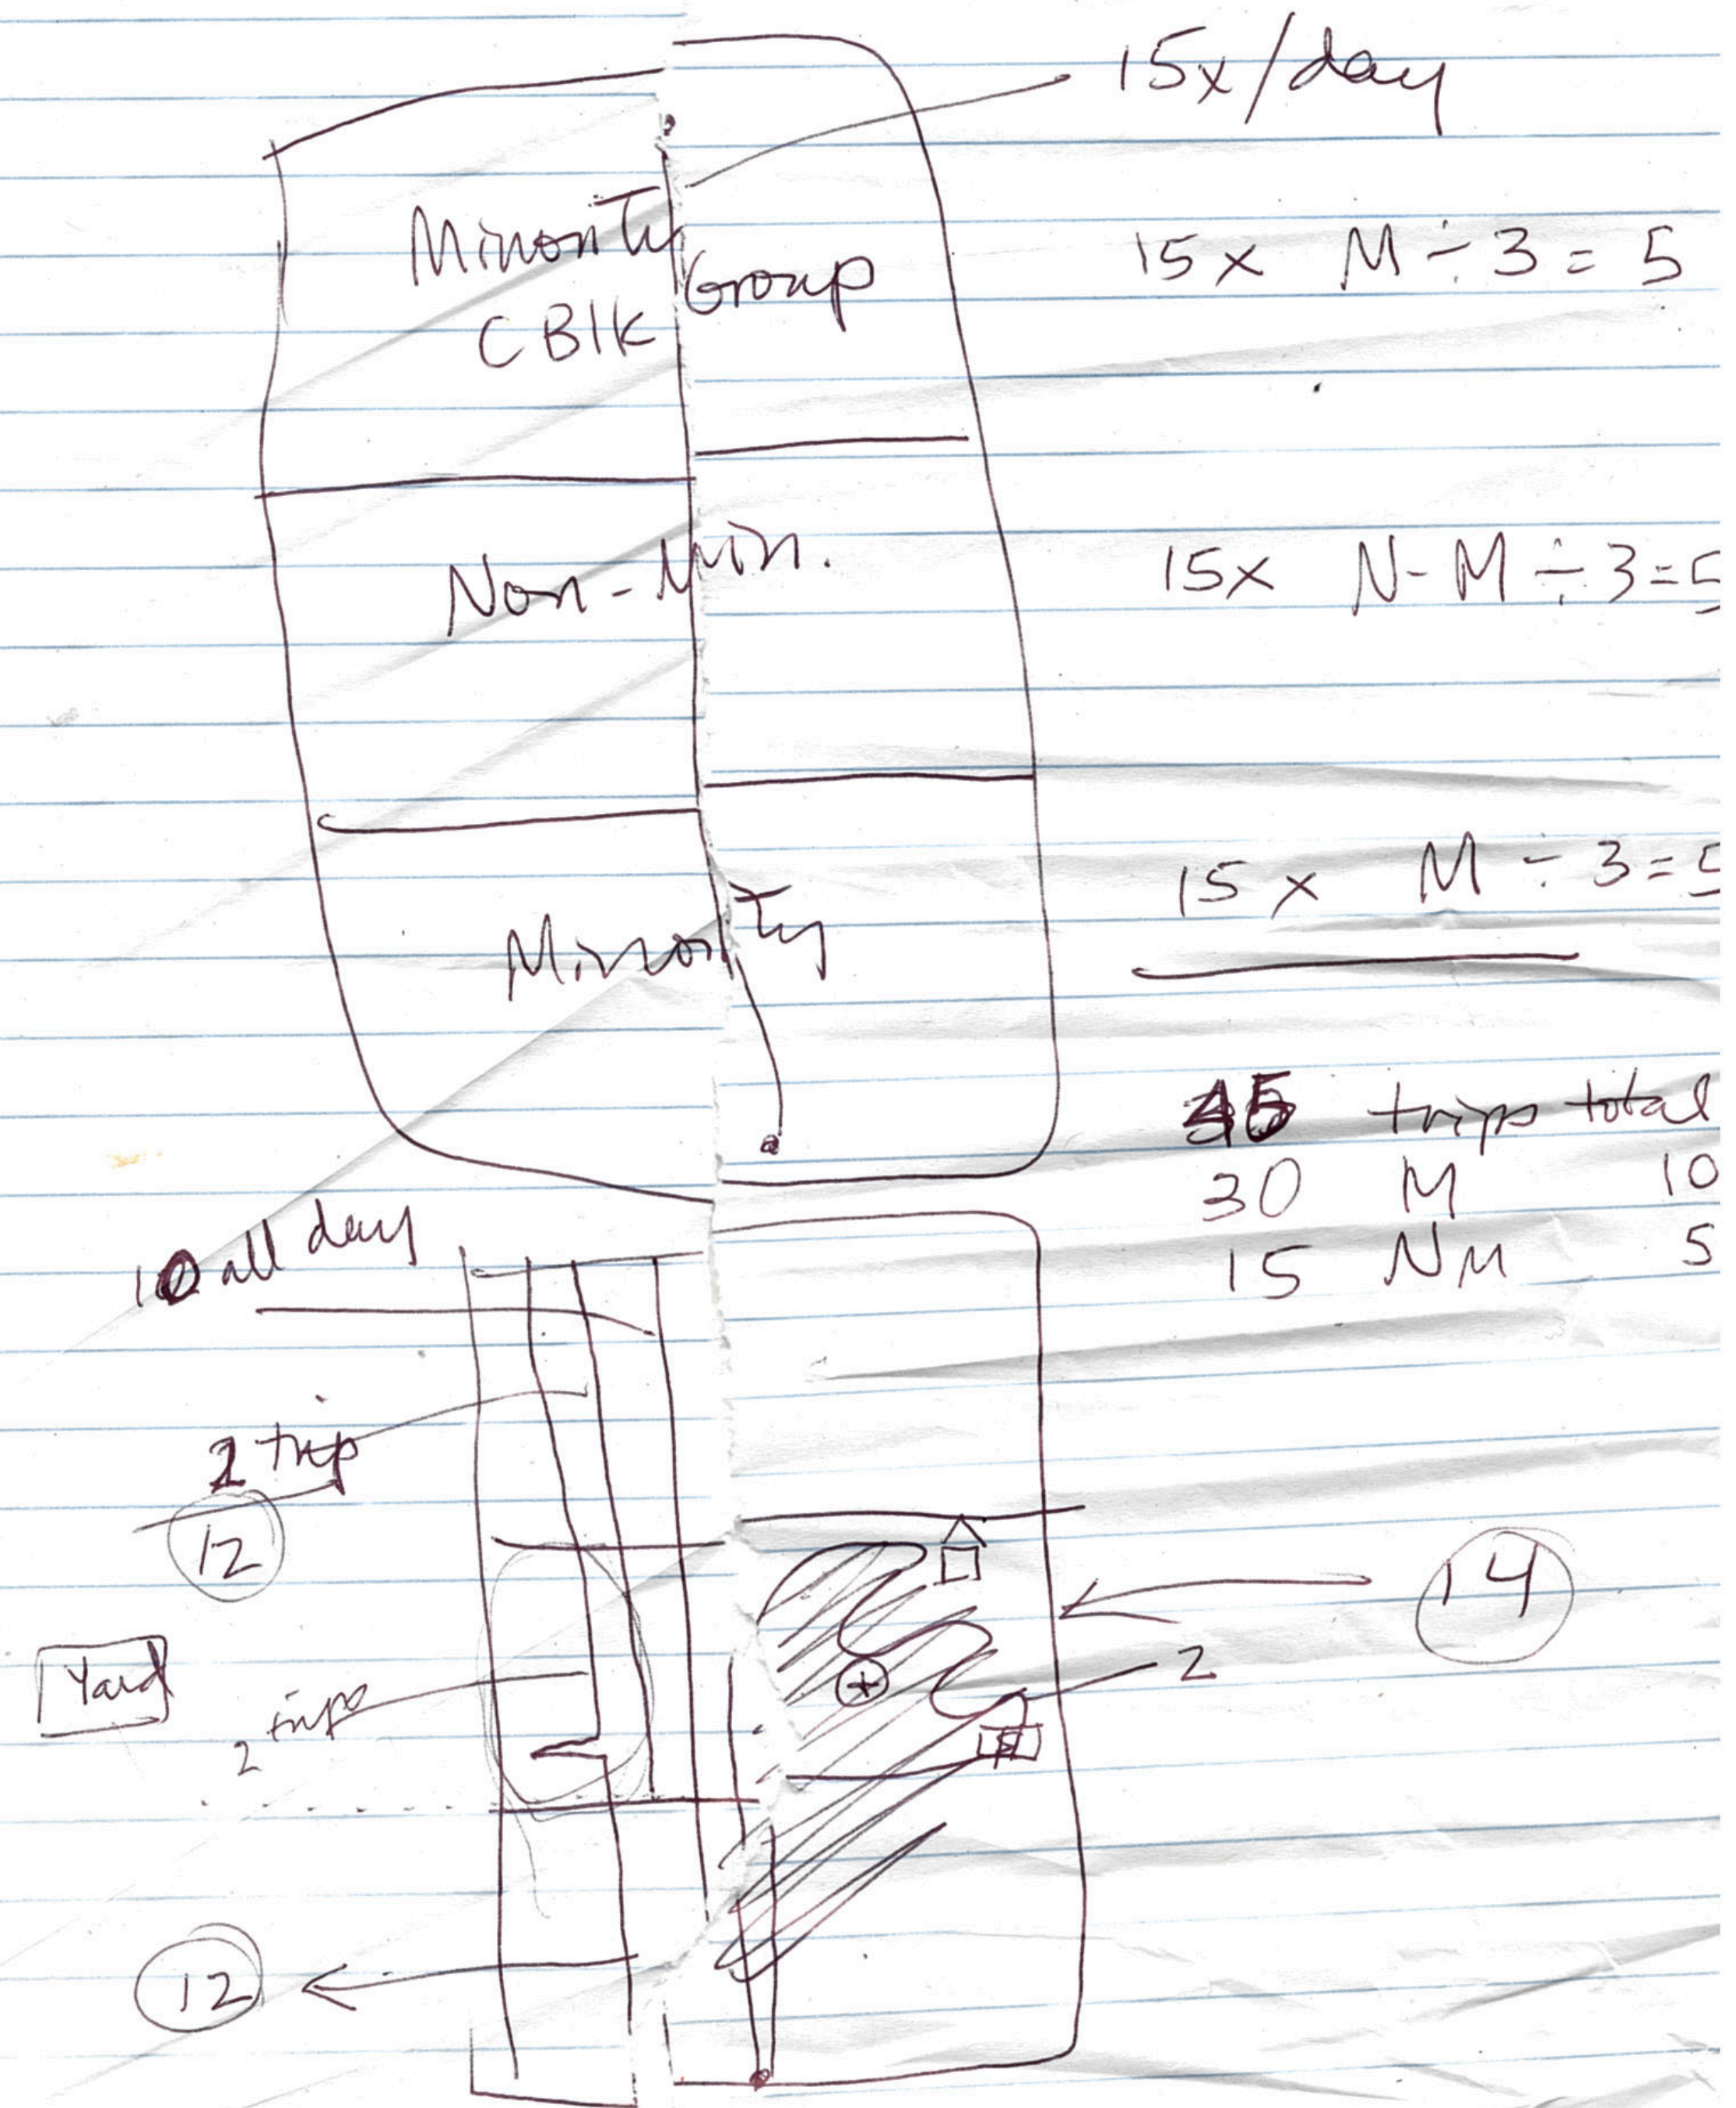 15x/day
Minority Group
CBlk
15x M ÷ 3 = 5
Non-Min.
15x N-M ÷ 3 = 5
Minority
15 x M ÷ 3 = 5
45 trips total
30 M 10
15 NM 5
10 all day
2 trip
12
14
Yard
2
2 trips
12